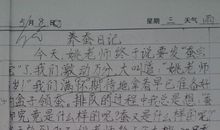 5月8日 星期三 天气
养蚕日记
今天,姚老师终于说要发“蚕宝
宝”了,我们激动万分,大叫道:“姚老师
万岁!”我们满怀期待地拿着早已准备好
的盒子领蚕。排队的过程中我总是想:蚕
究竟是什么样的呢?蚕又是什么样的呢?